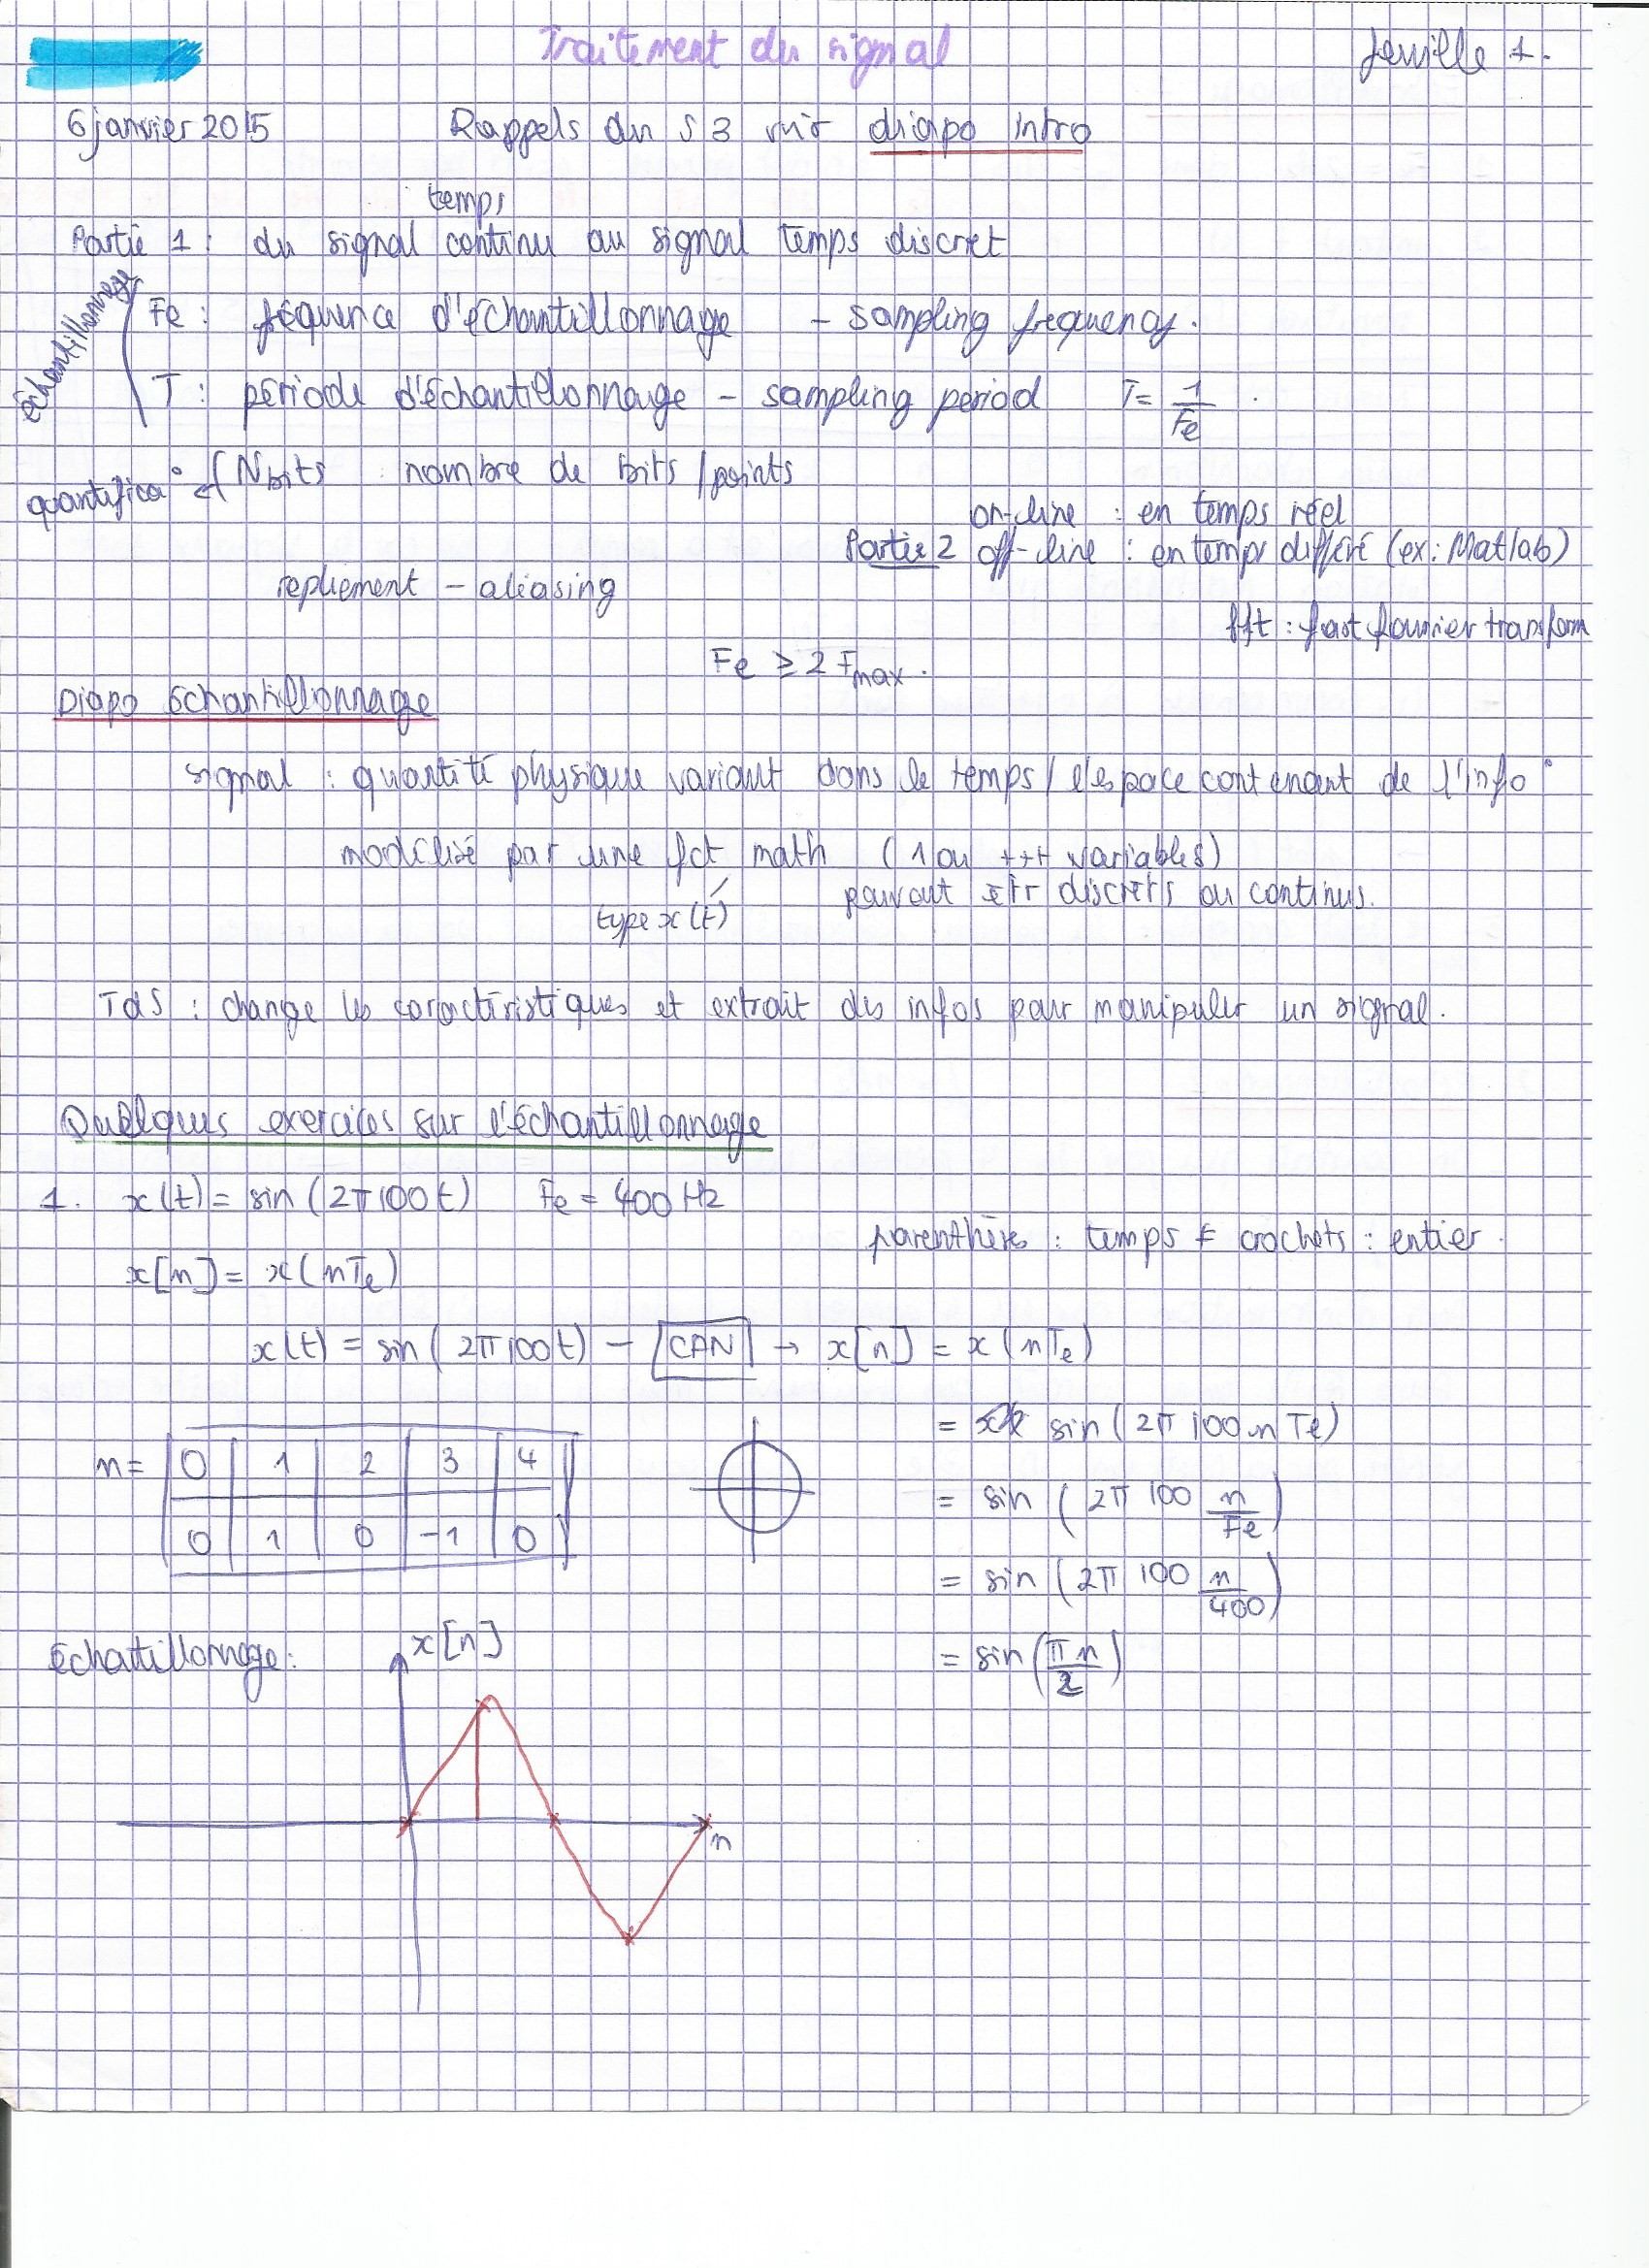 Traitement du signal
feuille 1.
6 janvier 2015 Rappels du S3 voir diapo intro
temps
Partie 1 : du signal continu au signal temps discret
échantillonnage
Fe : fréquence d'échantillonnage - sampling frequency.
T : période d'échantillonnage - sampling period T = 1/Fe .
quantifica° Nbits : nombre de bits/points
on-line : en temps réel
Partie 2 off-line : en temps différé (ex: Matlab)
repliement - aliasing
fft : fast fourrier transform
Fe ≥ 2 Fmax .
Diapo échantillonnage
signal : quantité physique variant dans le temps / l'espace contenant de l'info°
modélisé par une fct math (1 ou +++ variables)
type x(t) pouvant etr discrets ou continus.
TdS : change les caractéristiques et extrait des infos pour manipuler un signal.
Quelques exercices sur l'échantillonnage
1. x(t) = sin (2π100t) Fe = 400 Hz
parenthèses : temps ≠ crochets : entier .
x[n] = x(nTe)
x(t) = sin( 2π100t) - CAN → x[n] = x(nTe)
= sin(2π 100 n Te)
n = 0 1 2 3 4
= sin (2π 100 n/Fe)
0 1 0 -1 0
= sin (2π 100 n/400)
échatillonnage: x[n]
= sin(πn/2)
n